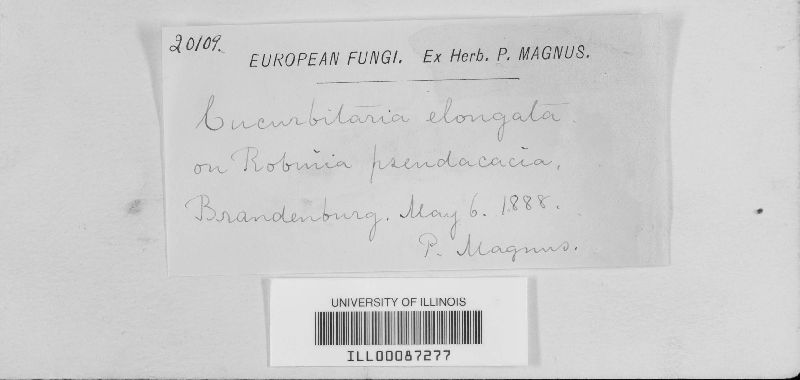 20109.
EUROPEAN FUNGI. Ex Herb. P. MAGNUS.
Cucurbitaria elongata.
on Robinia pseudacacia,
Brandenburg. May 6. 1888.
P. Magnus.
UNIVERSITY OF ILLINOIS
ILL00087277